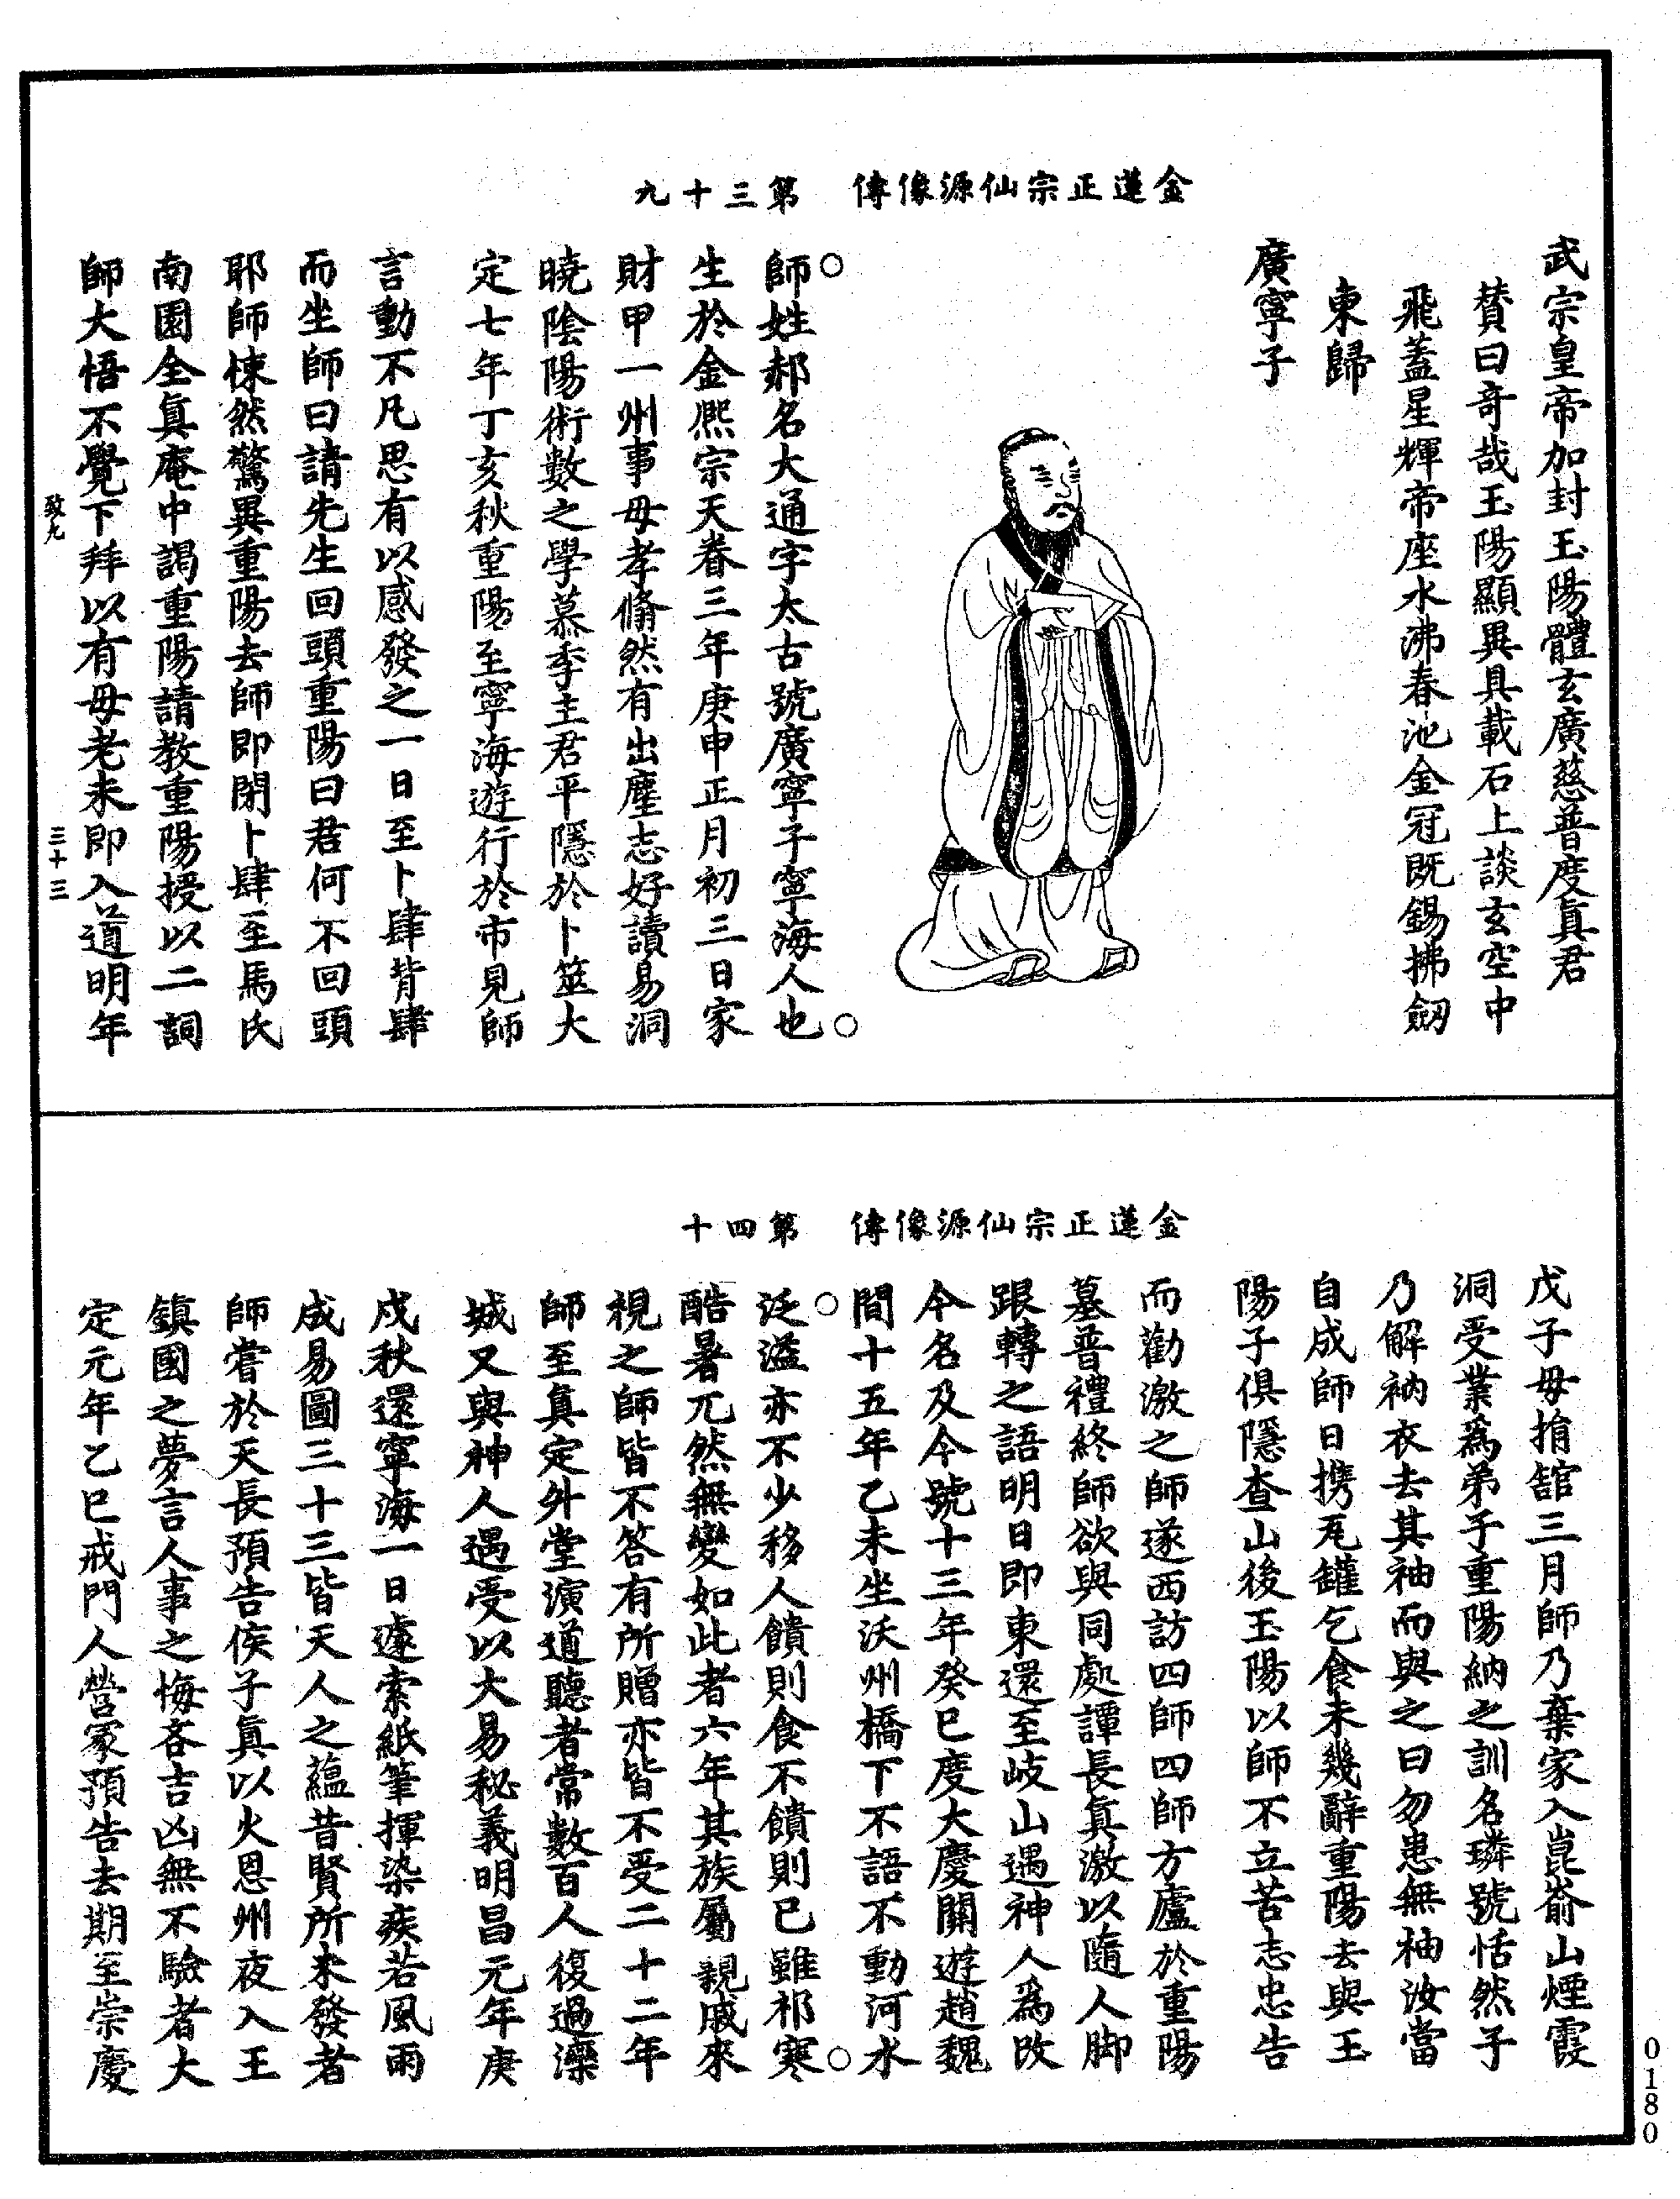 金蓮正宗仙源像傳　第三十九
武宗皇帝加封玉陽體玄廣慈普度真君
賛曰奇哉玉陽顯異具載石上談玄空中
飛蓋星輝帝座水沸春池金冠既錫拂劒
東歸
廣寧子
師姓郝名大通字太古號廣寧子寧海人也
生於金熈宗天眷三年庚申正月初三日家
財甲一州事母孝翛然有出塵志好讀易洞
曉陰陽術數之學慕季主君平隱於卜筮大
定七年丁亥秋重陽至寧海遊行於市見師
言動不凡思有以感發之一日至卜肆背肆
而坐師曰請先生回頭重陽曰君何不回頭
耶師悚然驚異重陽去師即閉卜肆至馬氏
南園全真庵中謁重陽請教重陽授以二詞
師大悟不覺下拜以有母老未即入道明年
致九
三十三
金蓮正宗仙源像傳　第四十
戊子母捐館三月師乃棄家入崑嵛山煙霞
洞受業為弟子重陽納之訓名璘號恬然子
乃解衲衣去其袖而與之曰勿患無袖汝當
自成師日携瓦罐乞食未幾辭重陽去與玉
陽子俱隱查山後玉陽以師不立苦志忠告
而勸激之師遂西訪四師四師方廬於重陽
墓普禮終師欲與同處譚長真激以隨人脚
跟轉之語明日即東還至岐山遇神人為改
今名及今號十三年癸巳度大慶關遊趙魏
間十五年乙未坐沃州橋下不語不動河水
泛溢亦不少移人饋則食不饋則已雖祁寒
酷暑兀然無變如此者六年其族屬親戚來
視之師皆不答有所贈亦皆不受二十二年
師至真定升堂演道聽者常數百人復過灤
城又與神人遇受以大易秘義明昌元年庚
戌秋還寧海一日遽索紙筆揮染疾若風雨
成易圖三十三皆天人之蘊昔賢所未發者
師嘗於天長預告侯子真以火恩州夜入王
鎮國之夢言人事之悔吝吉凶無不驗者大
定元年乙巳戒門人營冢預告去期至崇慶
0180